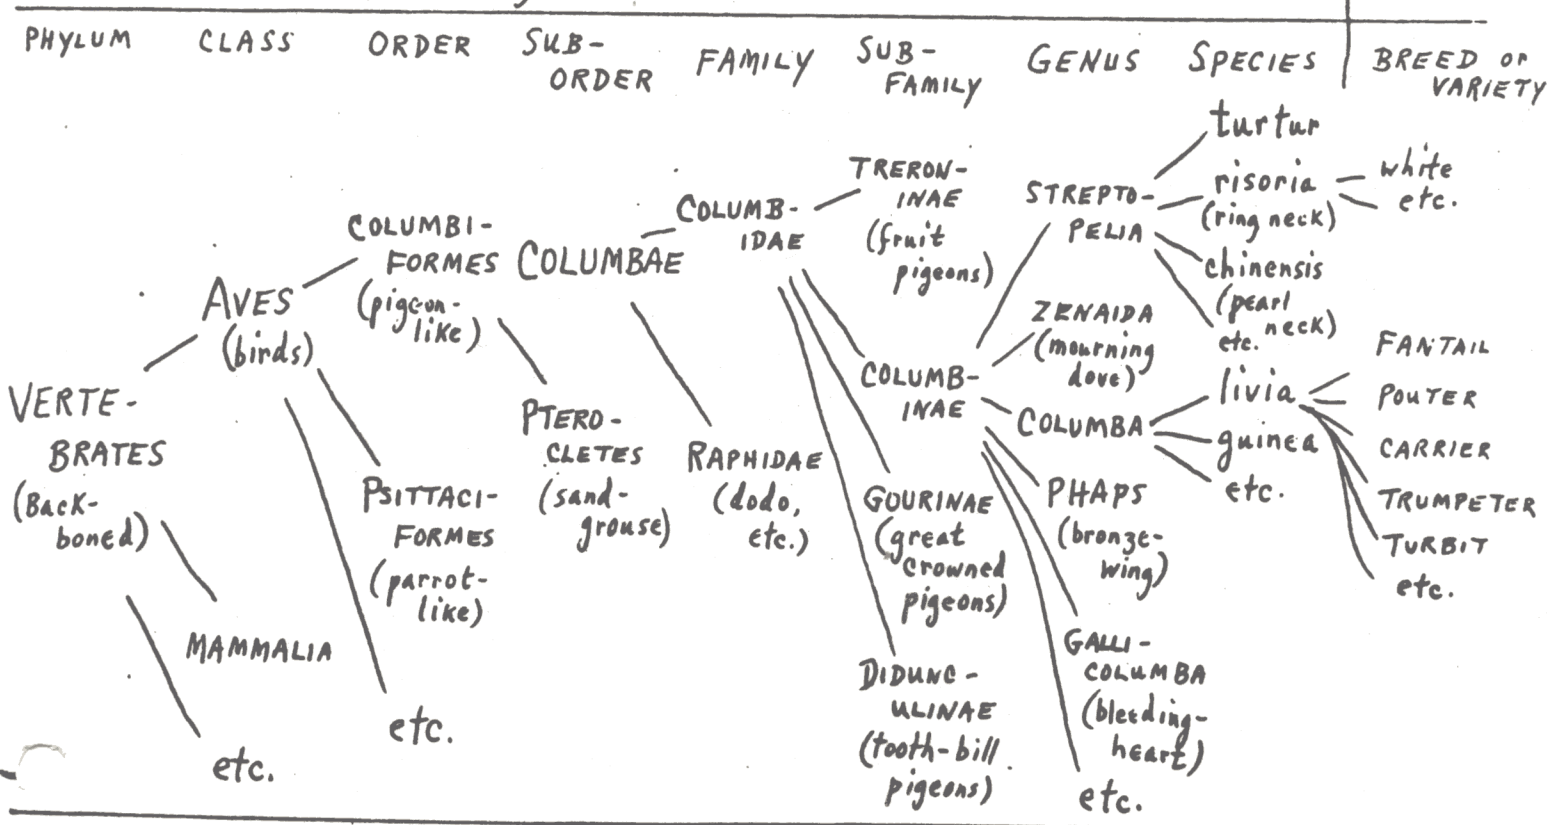 PHYLUM
CLASS
ORDER
SUB-
ORDER
FAMILY
SUB-
FAMILY
GENUS
SPECIES
BREED or
VARIETY
VERTE-
BRATES
(Back-
boned)
AVES
(birds)
MAMMALIA
etc.
COLUMBI-
FORMES
(pigeon-
like)
PSITTACI-
FORMES
(parrot-
like)
etc.
COLUMBAE
PTERO-
CLETES
(sand-
grouse)
COLUMB-
IDAE
RAPHIDAE
(dodo,
etc.)
TRERON-
INAE
(fruit
pigeons)
COLUMB-
INAE
GOURINAE
(great
crowned
pigeons)
DIDUNC-
ULINAE
(tooth-bill
pigeons)
STREPTO-
PELIA
ZENAIDA
(mourning
dove)
COLUMBA
PHAPS
(bronze-
wing)
GALLI-
COLUMBA
(bleeding-
heart)
etc.
turtur
risoria
(ring neck)
chinensis
(pearl
neck)
etc.
livia
guinea
etc.
white
etc.
FANTAIL
POUTER
CARRIER
TRUMPETER
TURBIT
etc.